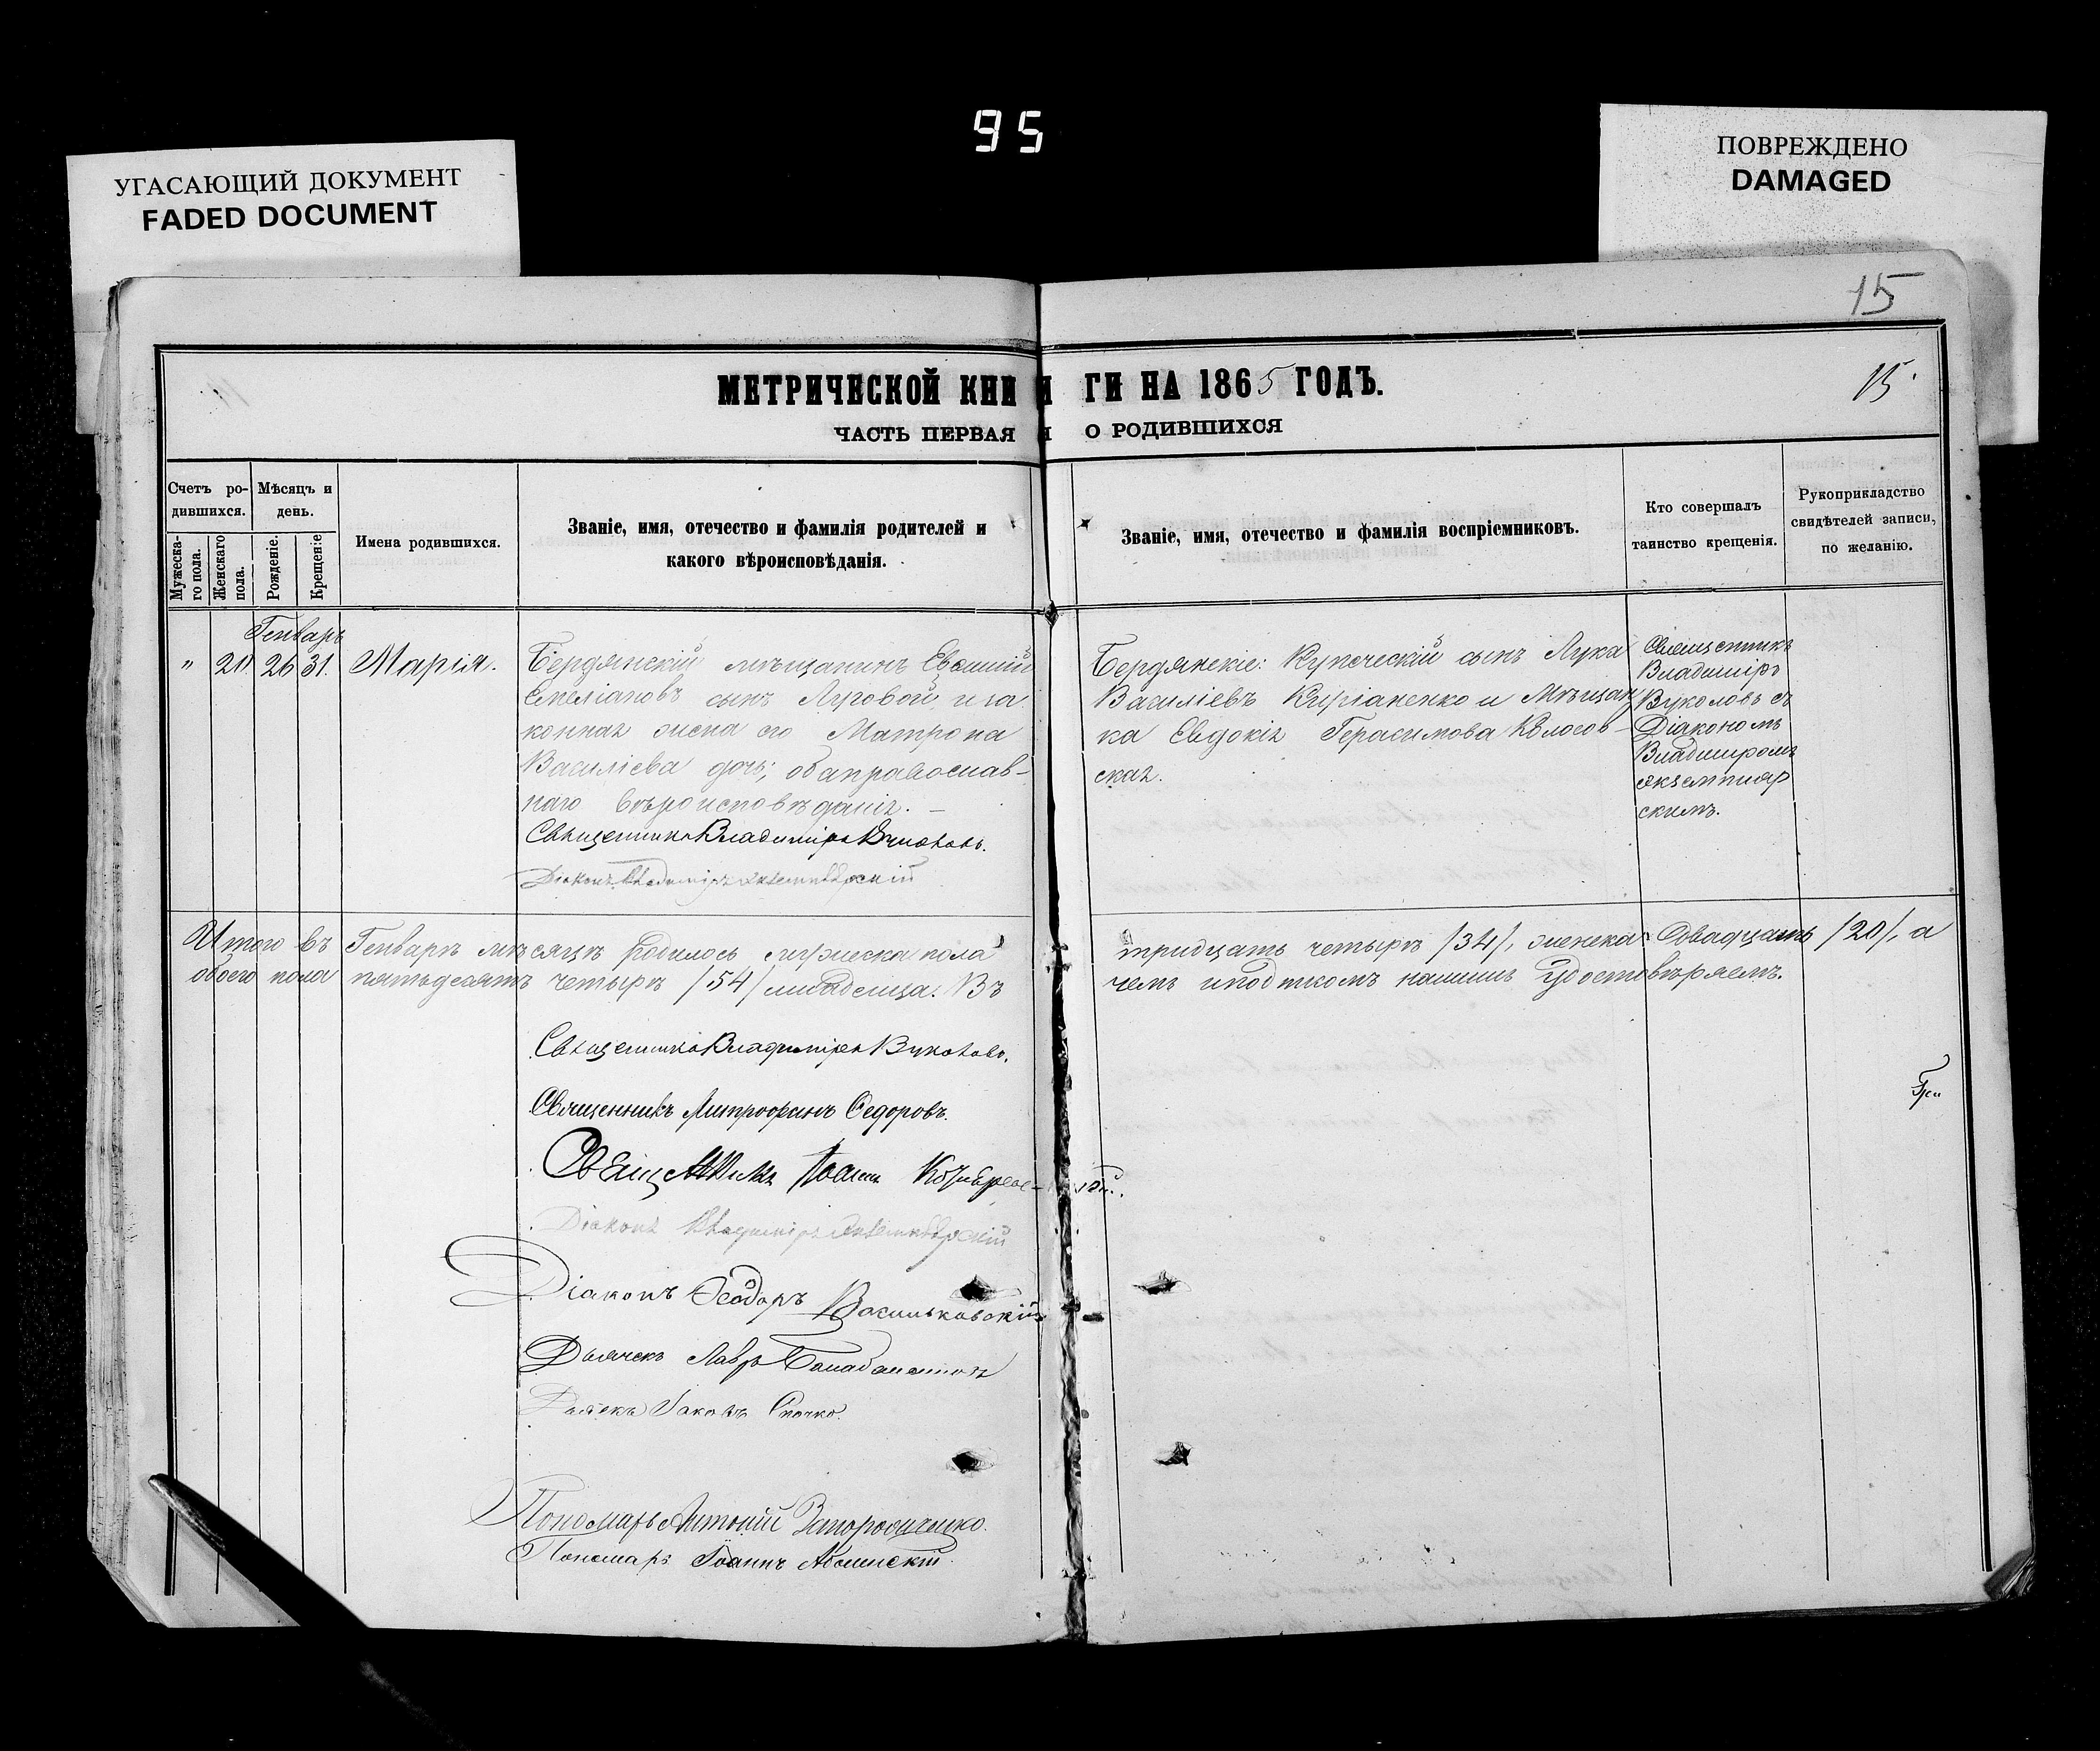 95
УГАСАЮЩИЙ ДОКУМЕНТ
FADED DOCUMENT
ПОВРЕЖДЕНО
DAMAGED
15
МЕТРИЧЕСКОЙ КНИ ГИ НА 1865 ГОДЪ.
15.
ЧАСТЬ ПЕРВАЯ О РОДИВШИХСЯ
Счетъ ро-
дившихся.
Мѣсяцъ и
день.
Мужеска-
го пола.
Женскаго
пола.
Рожденіе.
Крещеніе
Имена родившихся.
Званіе, имя, отечество и фамилія родителей и
какого вѣроисповѣданія.
Званіе, имя, отечество и фамилія воспріемниковъ.
Кто совершалъ
таинство крещенія.
Рукоприкладство
свидѣтелей записи,
по желанію.
Генварь
" 20. 26 31. Марія.
Бердянскій мѣщанинъ Евѳимій
Емеліановъ сынъ Луговой, и за
конная жена его Матрона
Василіева дочь; оба православ-
наго вѣроисповѣданія. –
Священникъ Владиміръ Вуколовъ.
Діаконъ Владиміръ Экземплярскій
Бердянскіе: Купеческій сынъ Лука
Василіевъ Кипріаненко и Мѣщан
ка Евдокія Герасимова Колосов-
ская.
Священникъ
Владиміръ
Вуколовъ съ
Діакономъ
Владиміромъ
Экземпляр
скимъ.
Итого въ Генварѣ мѣсяцѣ родилось мужеска пола тридцать четыре /34/, женска двадцать /20/, а
обоего пола пятьдесятъ четыре /54/ младенца. Въ чемъ и подписомъ нашимъ удостовѣряемъ.
Священникъ Владиміръ Вуколовъ.
Священникъ Митрофанъ Ѳедоровъ.
Священникъ Іоаннъ
Діаконъ Владиміръ Экземплярскій
Діаконъ Ѳеодоръ Васильковскій
Дьячекъ Лавръ
Дьячекъ Іаковъ
Пономарь Антоній
Пономарь Іоаннъ